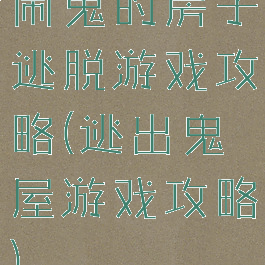 闹鬼的房子
逃脱游戏攻
略(逃出鬼
屋游戏攻略
)